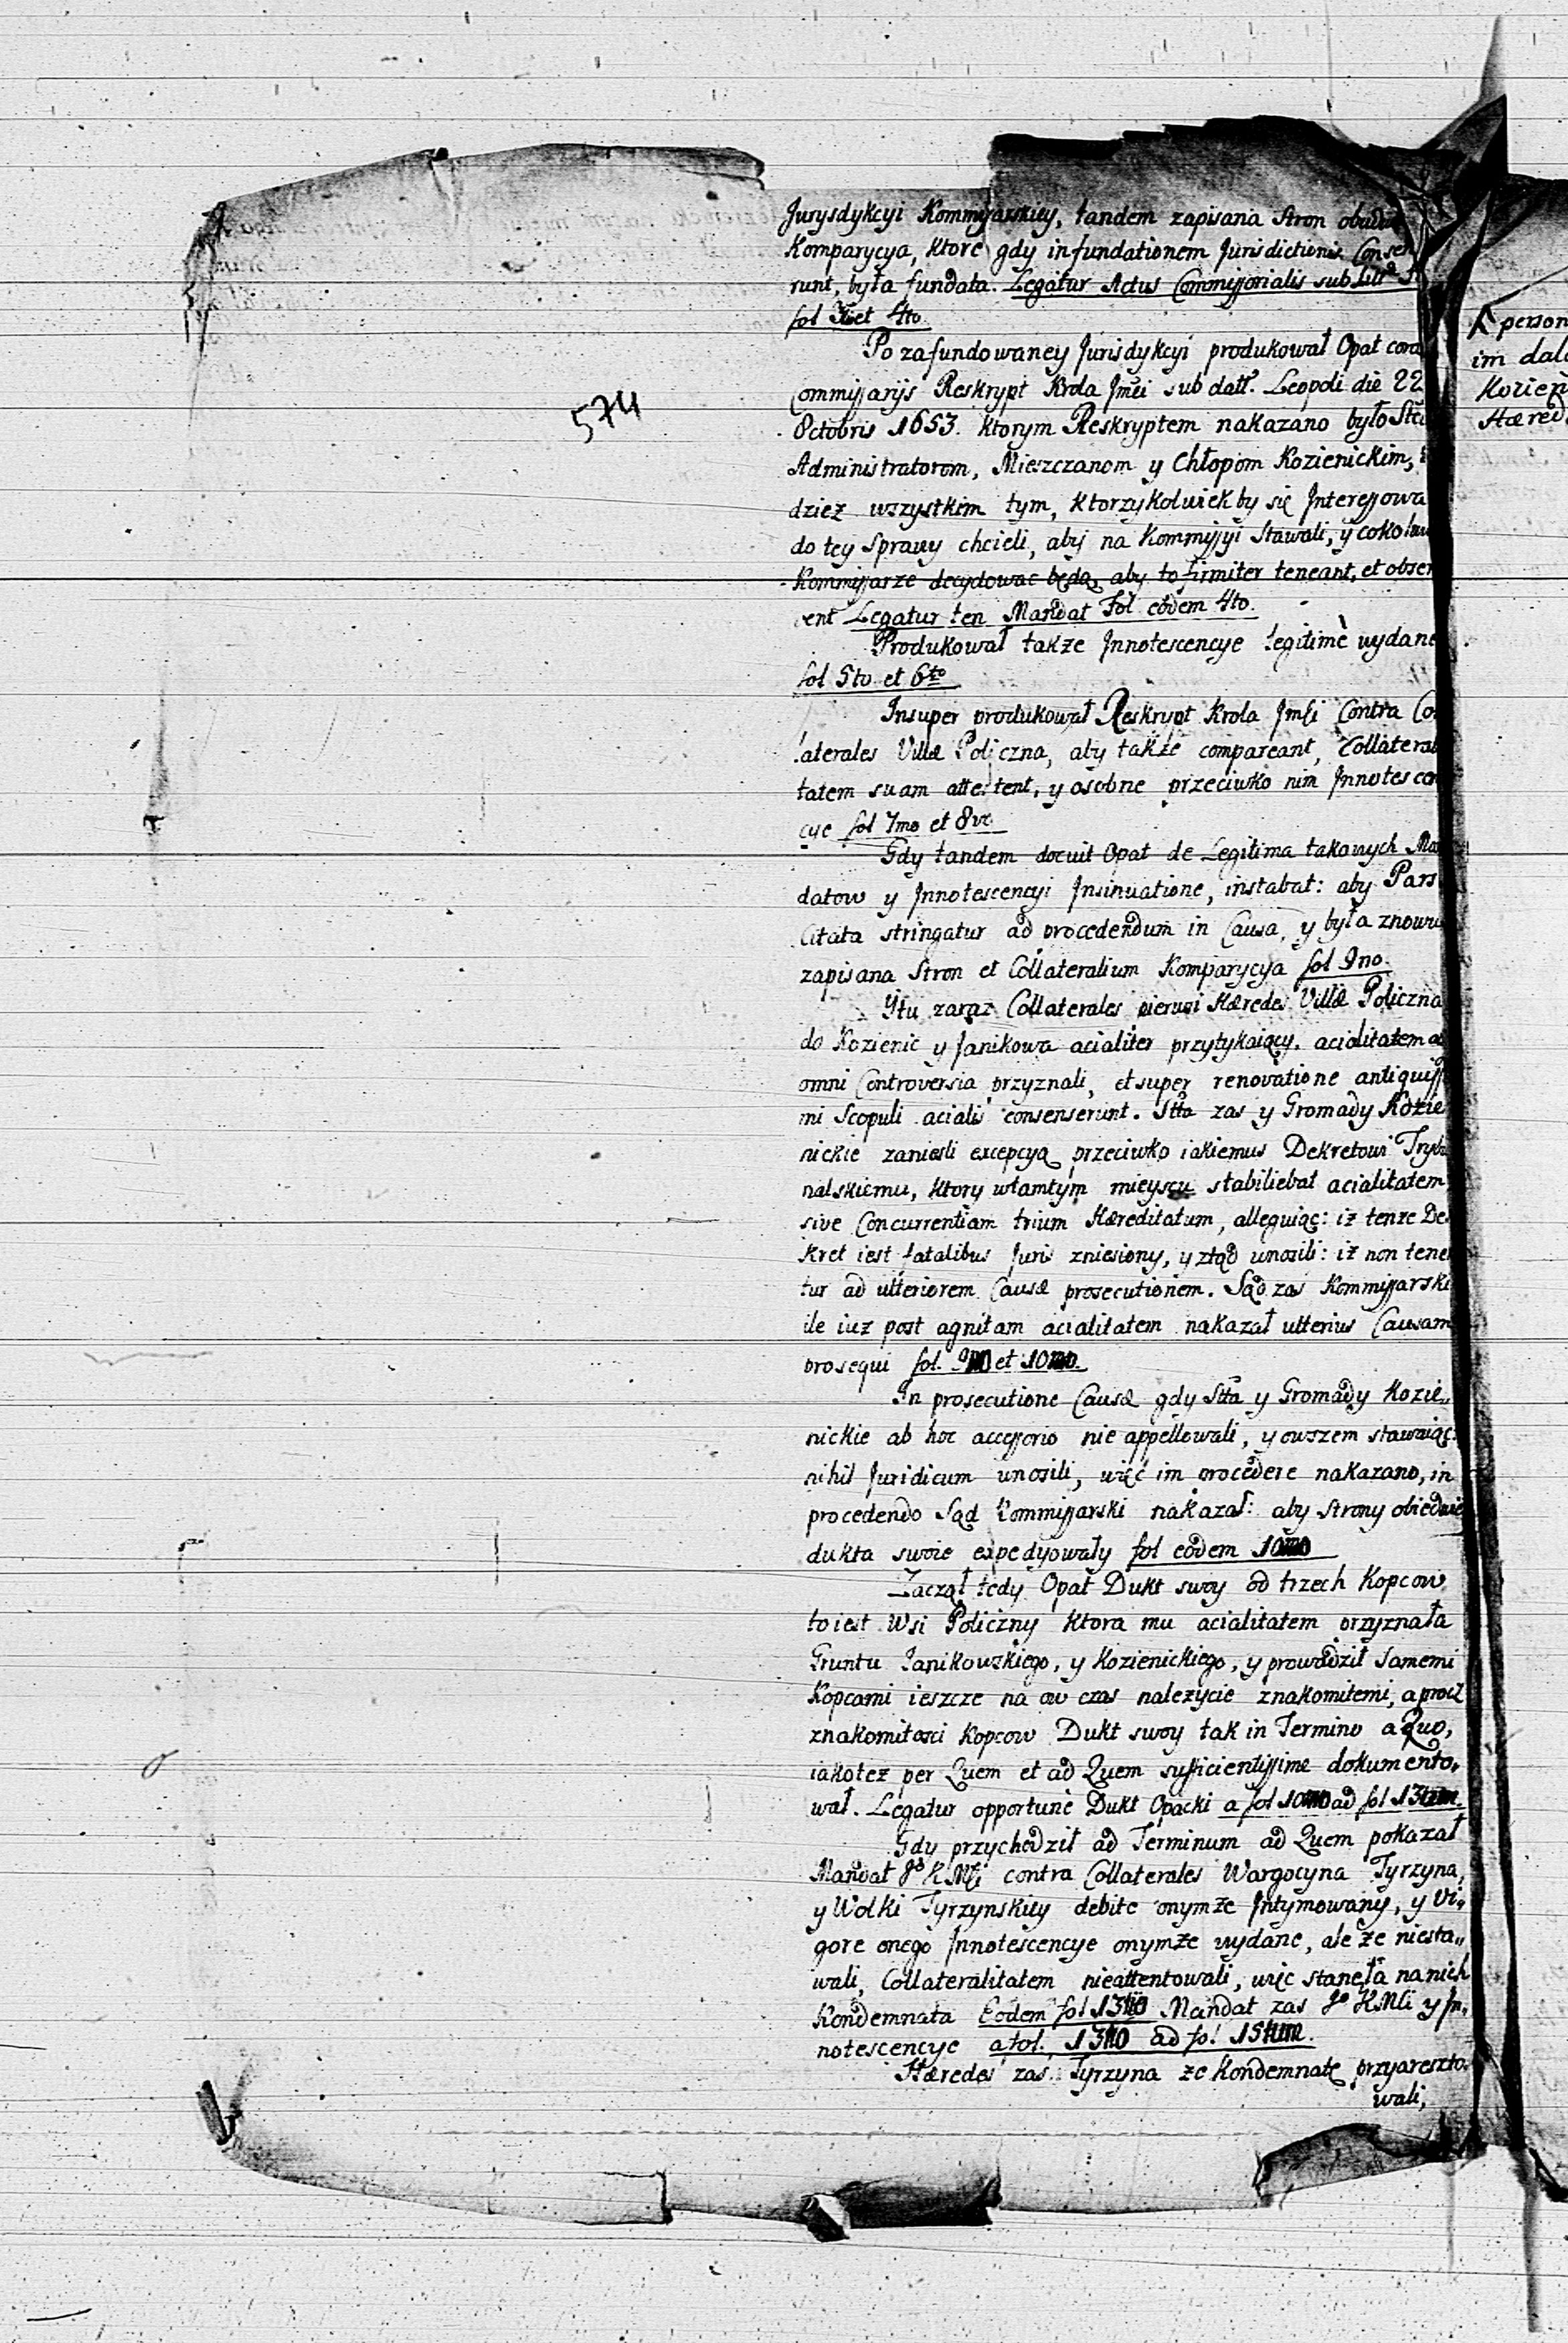 574
Jurysdykcyi Kommissarskiey, tandem zapisana Stron
Komparycya, ktore gdy in fundationem Jurisdictionis Consen
runt, była fundata. Legatur Actus Commissorialis sub Litt
fol et 4to
Po zafundowaney Jurisdykcyi produkował Opat cora
Commissarijs Reskrypt Krola Jmci sub datt. Leopoli die 22
Octobris 1653. ktorym Reskryptem nakazano było
Administratorom, Mieszczanom y Chłopom Kozienickim,
dziez wszystkim tym, ktorzykolwiek by się Interessowa
do tey Sprawy chcieli, aby na Kommissyi Stawali, y cokolwi
Kommissarze decydowac będą, aby to firmiter teneant, et obser
ent Legatur ten Mandat Fol eodem 4to.
Produkował także Innotescencye legitimè wydane
fol 5to et 6to
Insuper produkował Reskrypt Krola Jmci Contra Co
laterales Villæ Policzna, aby także compareant, Collateral
tatem suam attentent, y osobne przeciwko nim Innotescen
cye fol 7mo et 8vo
Gdy tandem docuit Opat de Legitima takowych Man
datow y Innotescencyi Insinuatione, instabat: aby Pars
Citata stringatur ad procedendum in Causa, y była znowu
zapisana Stron et Collateralium Komparycya fol 9no.
Y tu zaraz Collaterales pierwsi Hæredes Villæ Policzna
do Kozienic y Janikowa acialiter przytykaiący, acialitatem
omni Controversia przyznali, et super renovatione antiquissi
mi Scopuli acialis consenserunt. Stta zas y Gromady Kozie
nickie zaniesli excepcyą przeciwko iakiemus Dekretowi Trybu
nalskiemu, ktory w tamtym mieyscu stabiliebat acialitatem
sive Concurrentiam trium Hæreditatum, alleguiąc: iż tenze De
kret iest fatalibus Juris zniesiony, y ztąd wnosili: iż non tene
tur ad ulteriorem Causæ prosecutionem. Sąd zas Kommissarski
ile iuz post agnitam acialitatem nakazał ulterius Causam
prosequi fol. 9 et 10
In prosecutione Causæ gdy Stta y Gromady Kozie,,
nickie ab hoc accessorio nie appellowali, y owszem stawaiąc
nihil Juridicum wnosili, więc im procedere nakazano, in
procedendo Sąd Kommissarski nakazał: aby strony obiedwie
dukta swoie expedyowały fol eodem 10
Zaczął tedy Opat Dukt swoy od trzech Kopcow
to iest Wsi Policzny ktora mu acialitatem przyznała
Gruntu Janikowskiego, y Kozienickiego, y prowadził samemi
Kopcami ieszcze na ow czas nalezycie znakomitemi, a procz
znakomitosci Kopcow Dukt swoy tak in Termino a Quo,
iakotez per Quem et ad Quem sufficientissime dokumento,,
wał. Legatur opportunè Dukt Opacki a fol 10 ad fol 13
Gdy przychodził ad Terminum ad Quem pokazał
Mandat Jo K Mci contra Collaterales Wargocyna Tyrzyna,
y Wolki Tyrzynskiey debite onymże Intymowany, y vi,,
gore onego Innotescencye onymże wydane, ale że niesta,,
wali, Collateralitatem nieattentowali, więc stanęła na nich
Kondemnata Eodem fol 13 Mandat zas Jo K Mci y In,,
notescencye a fol. 13 ad fol 15
Hæredes zas Tyrzyna ze Kondemnatę przyareszto
wali,
person
im dal
Kozien
Hæred